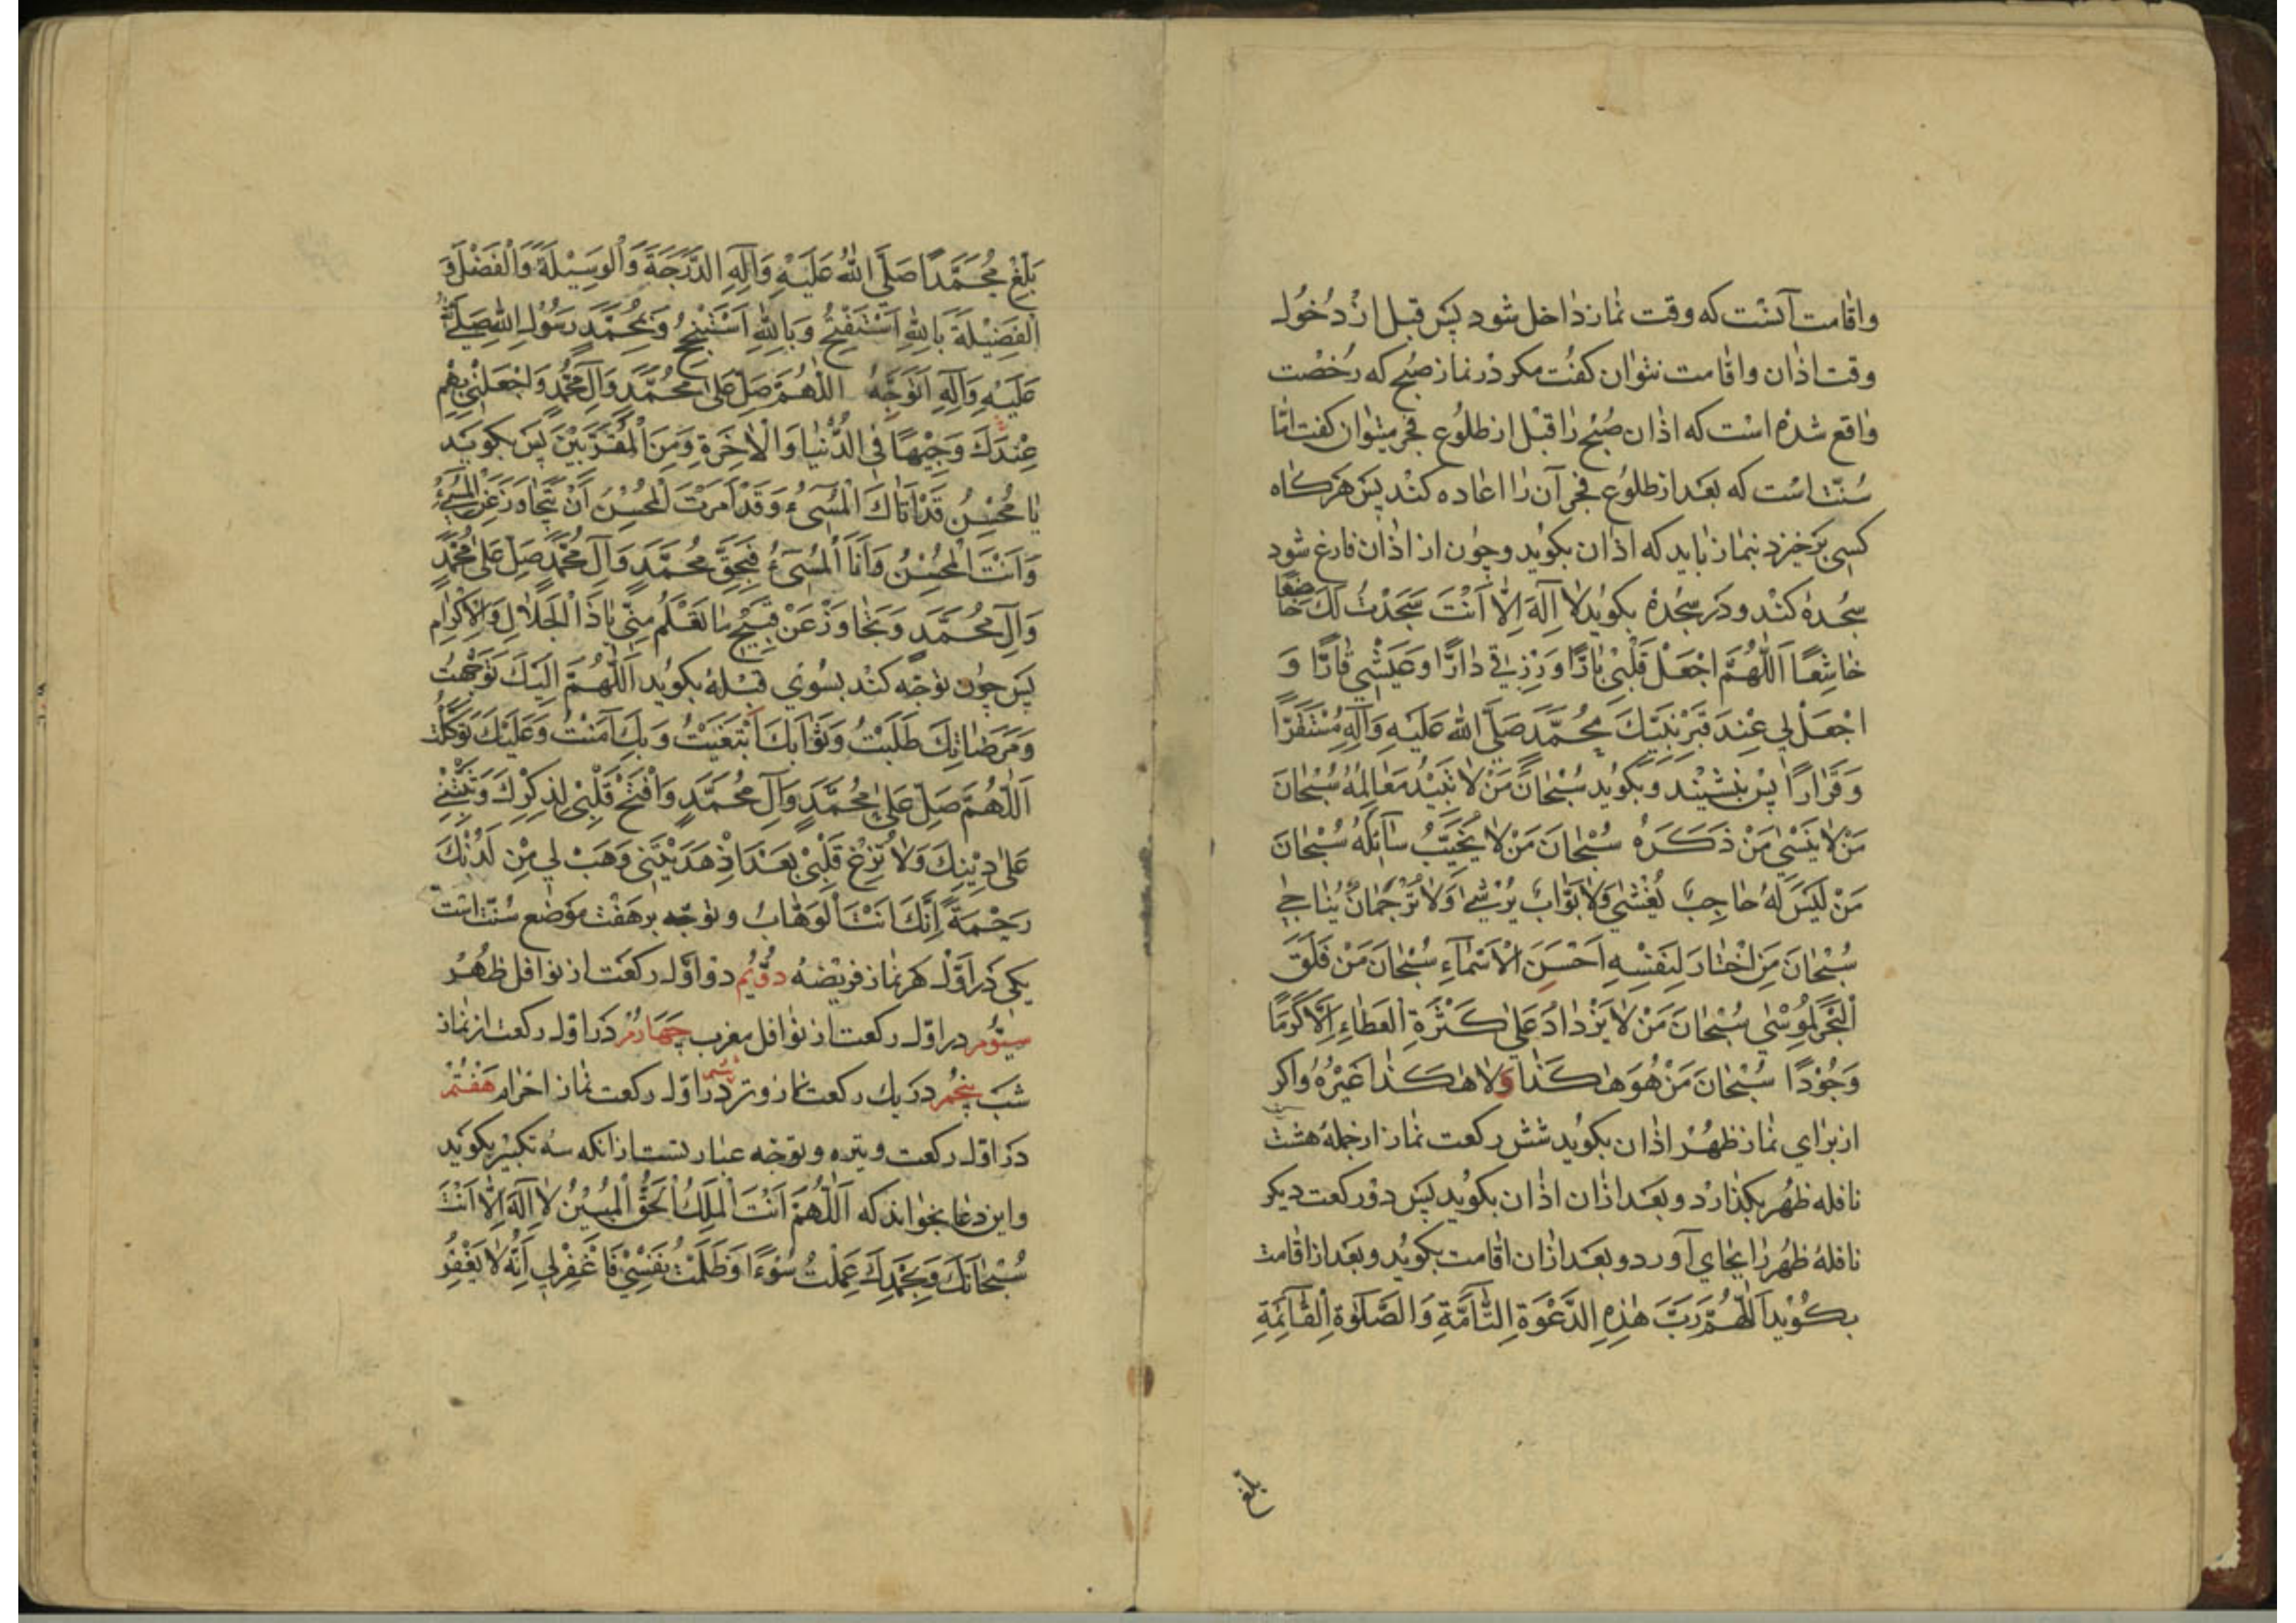 واقامت آنست که وقت نماز داخل شود پس قبل از دُخُول
وقت اذان واقامت نتوان کفت مکر در نماز صبح که رخصت
واقع شده است که اذان صُبْح را قبل از طلُوع فجر میتوان کفت امّا
سُنّت است که بعد از طلوع فجر آن را اعاده کنند پس هرکاه
کسی برخیزد بنماز باید که اذان بکوید وچون از اذان فارغ شود
سجده کند ودر سجده بکوید لا اِلٰهَ اِلّا اَنْتَ سَجَدْتُ لَكَ خاضِعًا
خاشِعًا اَللّٰهُمَّ اجْعَلْ قَلْبي بارًّا وَرِزْقي دارًّا وَعَيْشي قارًّا وَ
اجْعَلْ لي عِنْدَ قَبْرِ نَبِيِّكَ مُحَمَّدٍ صَلَّي اللهُ عَلَيْهِ وَآلِهِ مُسْتَقَرًّا
وَقَرارًا پس بنشیند وبکوید سُبْحانَ مَنْ لا تَبيدُ مَعالِمُهُ سُبْحانَ
مَنْ لا يَنْسي مَنْ ذَكَرَهُ سُبْحانَ مَنْ لا يُخَيِّبُ سآئِلَهُ سُبْحانَ
مَنْ لَيْسَ لَهُ حاجِبٌ يُغْشي وَلا بَوّابٌ يُرْشي وَلا تَرْجُمانٌ يُناجي
سُبْحانَ مَنِ اخْتارَ لِنَفْسِهِ اَحْسَنَ الْاَسْمآءِ سُبْحانَ مَنْ فَلَقَ
الْبَحْرَ لِمُوسي سُبْحانَ مَنْ لا يَزْدادُ عَلي كَثْرَةِ الْعَطاءِ اِلّا كَرَمًا
وَجُودًا سُبْحانَ مَنْ هُوَ هٰكَذا وَلا هٰكَذا غَيْرُهُ واکر
از برای نماز ظهر اذان بکوید شش رکعت نماز از جملهٔ هشت
نافله ظهر بکذارد وبعد از آن اذان بکوید پس دو رکعت دیکر
نافلهٔ ظهر را بجای آورد وبعد از آن اقامت بکوید وبعد از اقامت
بکوید اَللّٰهُمَّ رَبَّ هٰذِهِ الدَّعْوَةِ التّآمَّةِ وَالصَّلٰوةِ الْقآئِمَةِ
بلغ
بَلِّغْ مُحَمَّدًا صَلَّي اللهُ عَلَيْهِ وَآلِهِ الدَّرَجَةَ وَالْوَسيلَةَ وَالْفَضْلَ وَ
الْفَضيلَةَ بِاللهِ اَسْتَفْتِحُ وَبِاللهِ اَسْتَنْجِحُ وَبِمُحَمَّدٍ رَسُولِ اللهِ صَلَّي اللهُ
عَلَيْهِ وَآلِهِ اَتَوَجَّهُ اللّٰهُمَّ صَلِّ عَلي مُحَمَّدٍ وَآلِ مُحَمَّدٍ وَاجْعَلْني بِهِمْ
عِنْدَكَ وَجيهًا فِي الدُّنْيا وَالْاٰخِرَةِ وَمِنَ الْمُقَرَّبينَ پس بکوید
يا مُحْسِنُ قَدْ اَتاكَ الْمُسيءُ وَقَدْ اَمَرْتَ الْمُحْسِنَ اَنْ يَتَجاوَزَ عَنِ الْمُسيءِ
وَاَنْتَ الْمُحْسِنُ وَاَنَا الْمُسيءُ فَبِحَقِّ مُحَمَّدٍ وَآلِ مُحَمَّدٍ صَلِّ عَلي مُحَمَّدٍ
وَآلِ مُحَمَّدٍ وَتَجاوَزْ عَنْ قَبيحِ ما تَعْلَمُ مِنّي ياذَا الْجَلالِ وَالْاِكْرامِ
پس چون توجّه کند بسوی قبله بکوید اَللّٰهُمَّ اِلَيْكَ تَوَجَّهْتُ
وَمَرْضاتِكَ طَلَبْتُ وَثَوابَكَ ابْتَغَيْتُ وَبِكَ آمَنْتُ وَعَلَيْكَ تَوَكَّلْتُ
اَللّٰهُمَّ صَلِّ عَلي مُحَمَّدٍ وَآلِ مُحَمَّدٍ وَافْتَحْ قَلْبي لِذِكْرِكَ وَثَبِّتْني
عَلي دينِكَ وَلا تُزِغْ قَلْبي بَعْدَ اِذْ هَدَيْتَني وَهَبْ لي مِنْ لَدُنْكَ
رَحْمَةً اِنَّكَ اَنْتَ الْوَهّابُ وتوجّه بر هفت موضع سنّت است
یکی در اوّل هر نماز فریضه دوّیم دو اوّل رکعت از نوافل ظهر
سیّوم در اوّل رکعت از نوافل مغرب چهارم در اوّل رکعت از نماز
شب پنجم در یك رکعت نماز وتر ششم در اوّل رکعت نماز احرام هفتم
در اوّل رکعت وتیره وتوجّه عبارتست از آنکه سه تکبیر بکوید
واین دعا بخواند که اَللّٰهُمَّ اَنْتَ الْمَلِكُ الْحَقُّ الْمُبينُ لا اِلٰهَ اِلّا اَنْتَ
سُبْحانَكَ وَبِحَمْدِكَ عَمِلْتُ سُوءًا وَظَلَمْتُ نَفْسي فَاغْفِرْ لي اِنَّهُ لا يَغْفِرُ